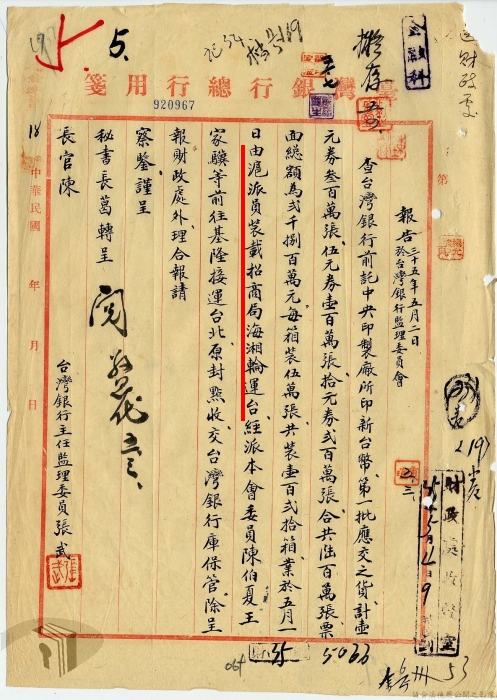 5.
擬存
金融科
送財政處
臺灣銀行總行用箋
920967
報告 三十五年五月二日於台灣銀行監理委員會
查台灣銀行前託中央印製廠所印新台幣、第一批應交之貨計壹
元券叁百萬張、伍元券壹百萬張、拾元券弍百萬張、合共陸百萬張、票
面總額為弍千捌百萬元、每箱裝伍萬張、共裝壹百弍拾箱、業於五月一
日由滬派員裝載招商局海湘輪運台、經派本會委員陳伯夏王
家驥等前往基隆接運台北、原封點收、交台灣銀行庫保管、除呈
報財政處外、理合報請
察鑒謹呈
秘書長葛轉呈
長官陳
台灣銀行主任監理委員張武
中華民國 年 月 日
第
閱
五、三
5033
35
53
064